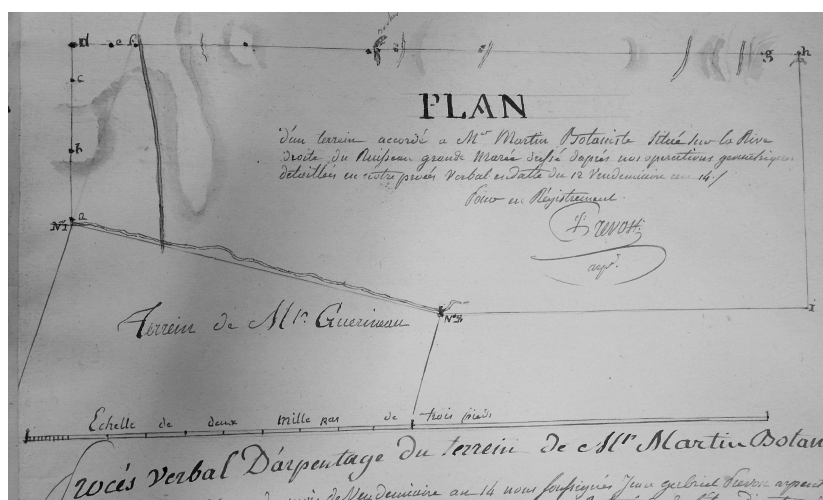 d e f g h
c
b
a
N° 1
PLAN
d'un terrain accordé a Mr Martin Botaniste Situé Sur la Rive
droite du Ruisseau grande Marée dressé d'après nos operations geometriques
detaillées en notre procés Verbal en datte du 12 Vendemiaire an 14 /
Pour en Régistrement
Prevost
arpr.
Terrein de Mr. Guerineau
i
Echelle de deux Mille pas de trois pieds
Procés Verbal D'arpentage du terrein de Mr Martin Botan
de Vendemiaire an 14 nous soussignés Jean gabriel Prevost arpent